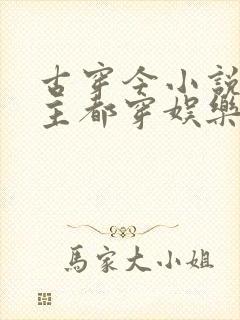 古穿今小説
主都穿娛樂
馬家大小姐